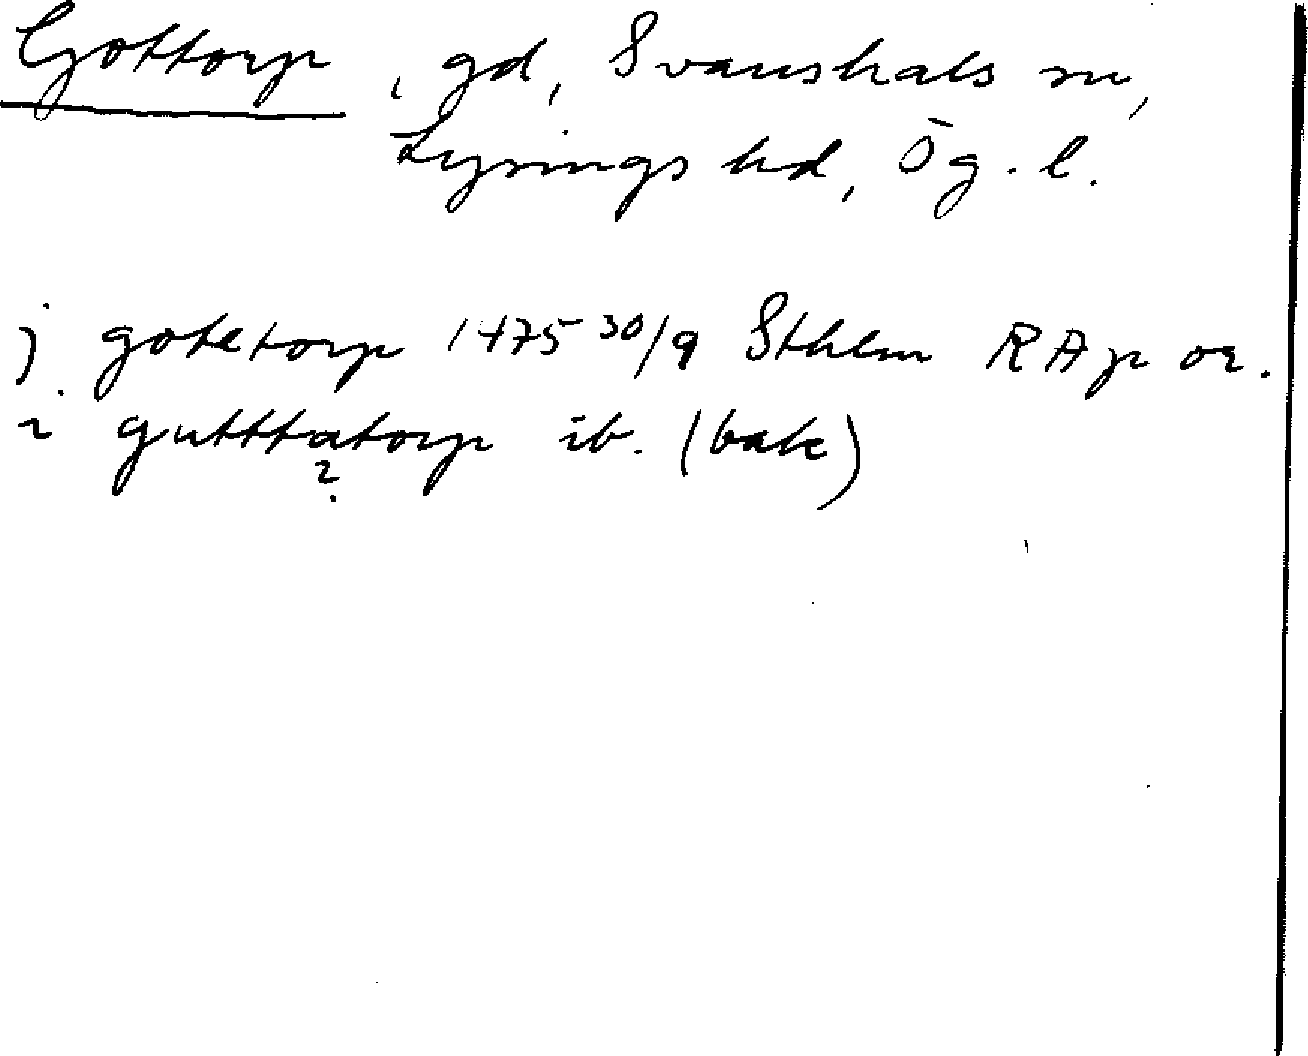 Gottorp, gd, Svanshals sn,
Lysings hd, Ög. l.
j gotetorp 1475 30/9 Sthlm RA p or.
i gutttatorp ib. (bak)
?